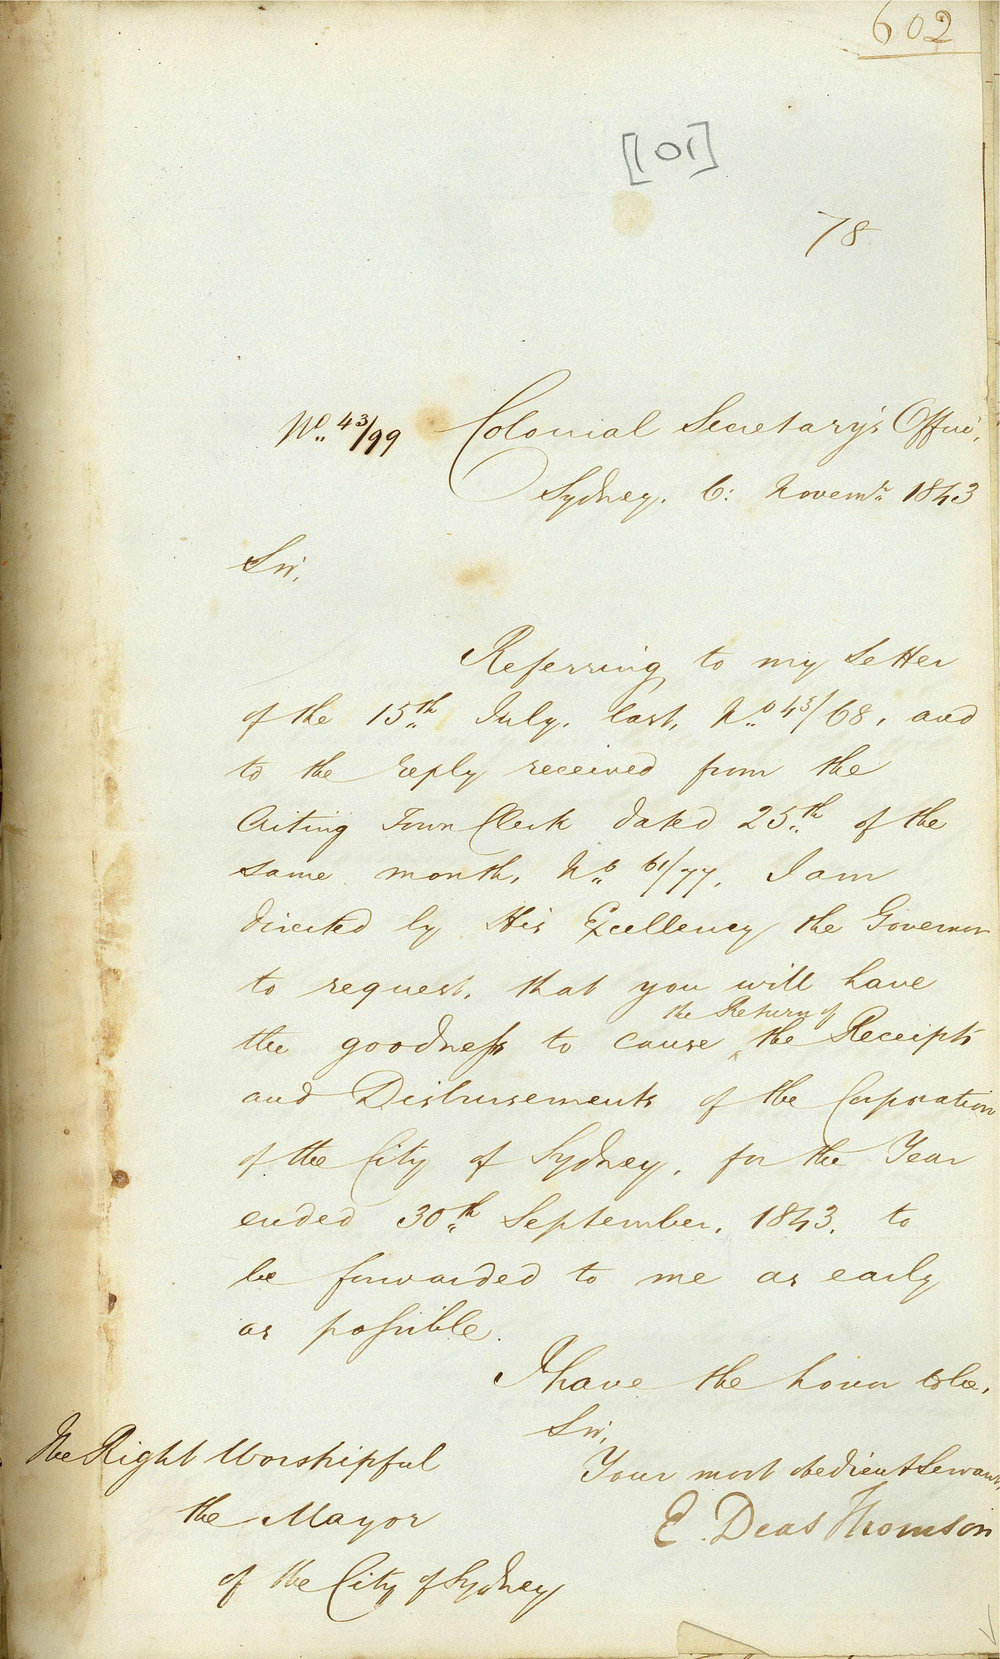 602
[101]
78
No. 43/99 Colonial Secretary's Office,
Sydney. 6: Novemr. 1843
Sir,
Referring to my letter
of the 15th July, last, No. 43/68, and
to the reply received from the
Acting Town Clerk dated 25th of the
same month, No. 61/77, I am
directed by His Excellency the Governor
to request, that you will have
the Return of
the goodness to cause ^ the Receipts
and Disbursements of the Corporation
of the City of Sydney, for the Year
ended 30th September, 1843, to
be forwarded to me as early
as possible.
I have the honor to be,
Sir,
The Right Worshipful
Your most obedient Servant,
the Mayor
E. Deas Thomson
of the City of Sydney